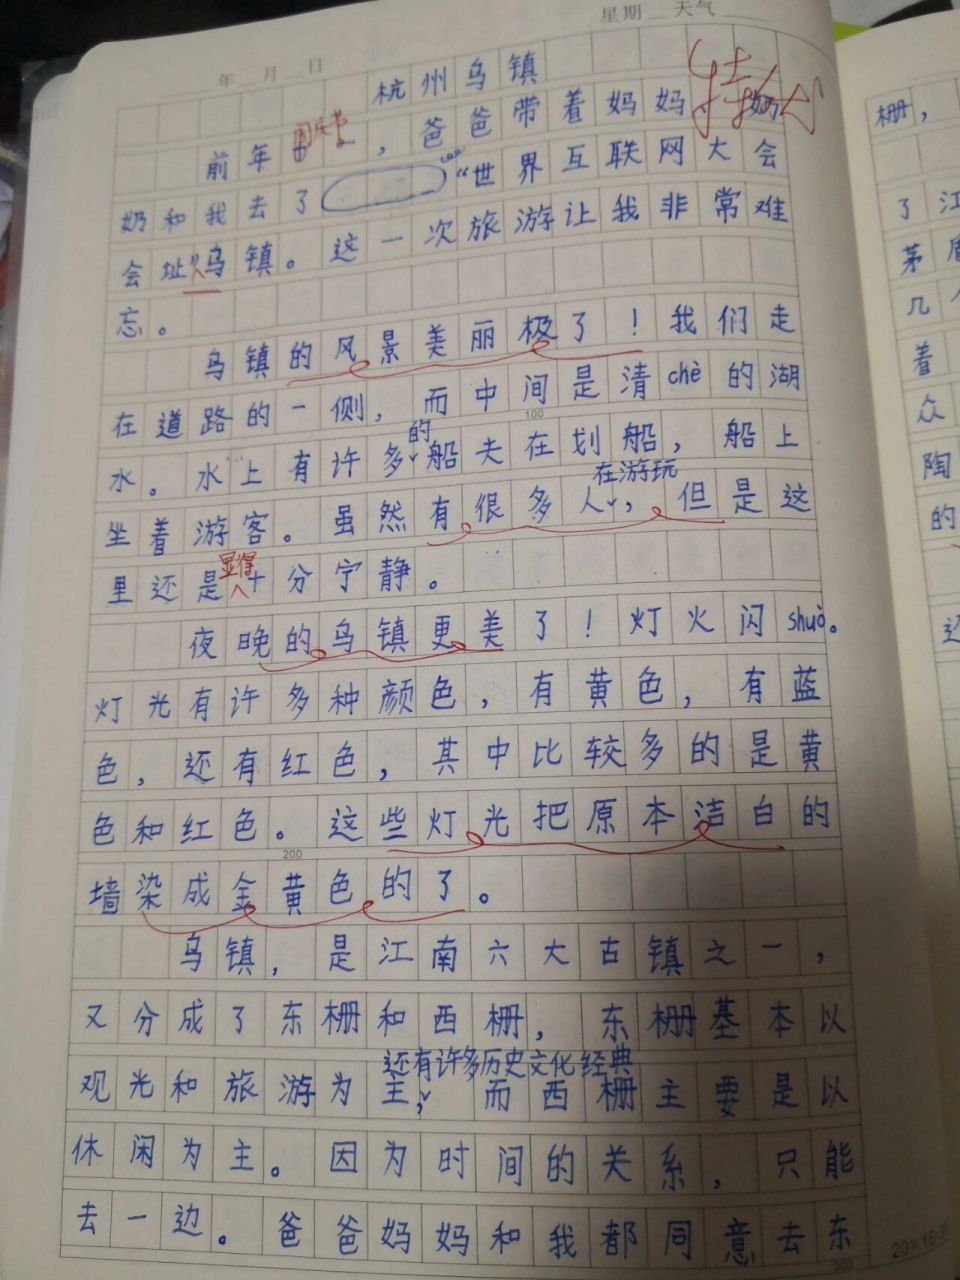 星期 天气
年 月 日
杭州乌镇
前年国庆节，爸爸带着妈妈
奶和我去了“世界互联网大会
会址”乌镇。这一次旅游让我非常难
忘。
乌镇的风景美丽极了！我们走
在道路的一侧，而中间是清chè的湖
水。水上有许多的船夫在划船，船上
坐着游客。虽然有很多人在游玩，但是这
里还是显得十分宁静。
夜晚的乌镇更美了！灯火闪shuò。
灯光有许多种颜色，有黄色，有蓝
色，还有红色，其中比较多的是黄
色和红色。这些灯光把原本洁白的
墙染成金黄色的了。
乌镇，是江南六大古镇之一，
又分成了东栅和西栅，东栅基本以
观光和旅游为主，还有许多历史文化经典，而西栅主要是以
休闲为主。因为时间的关系，只能
去一边。爸爸妈妈和我都同意去东
100
200
300
栅，
了江
茅盾
几个
着
众
陶
的
还